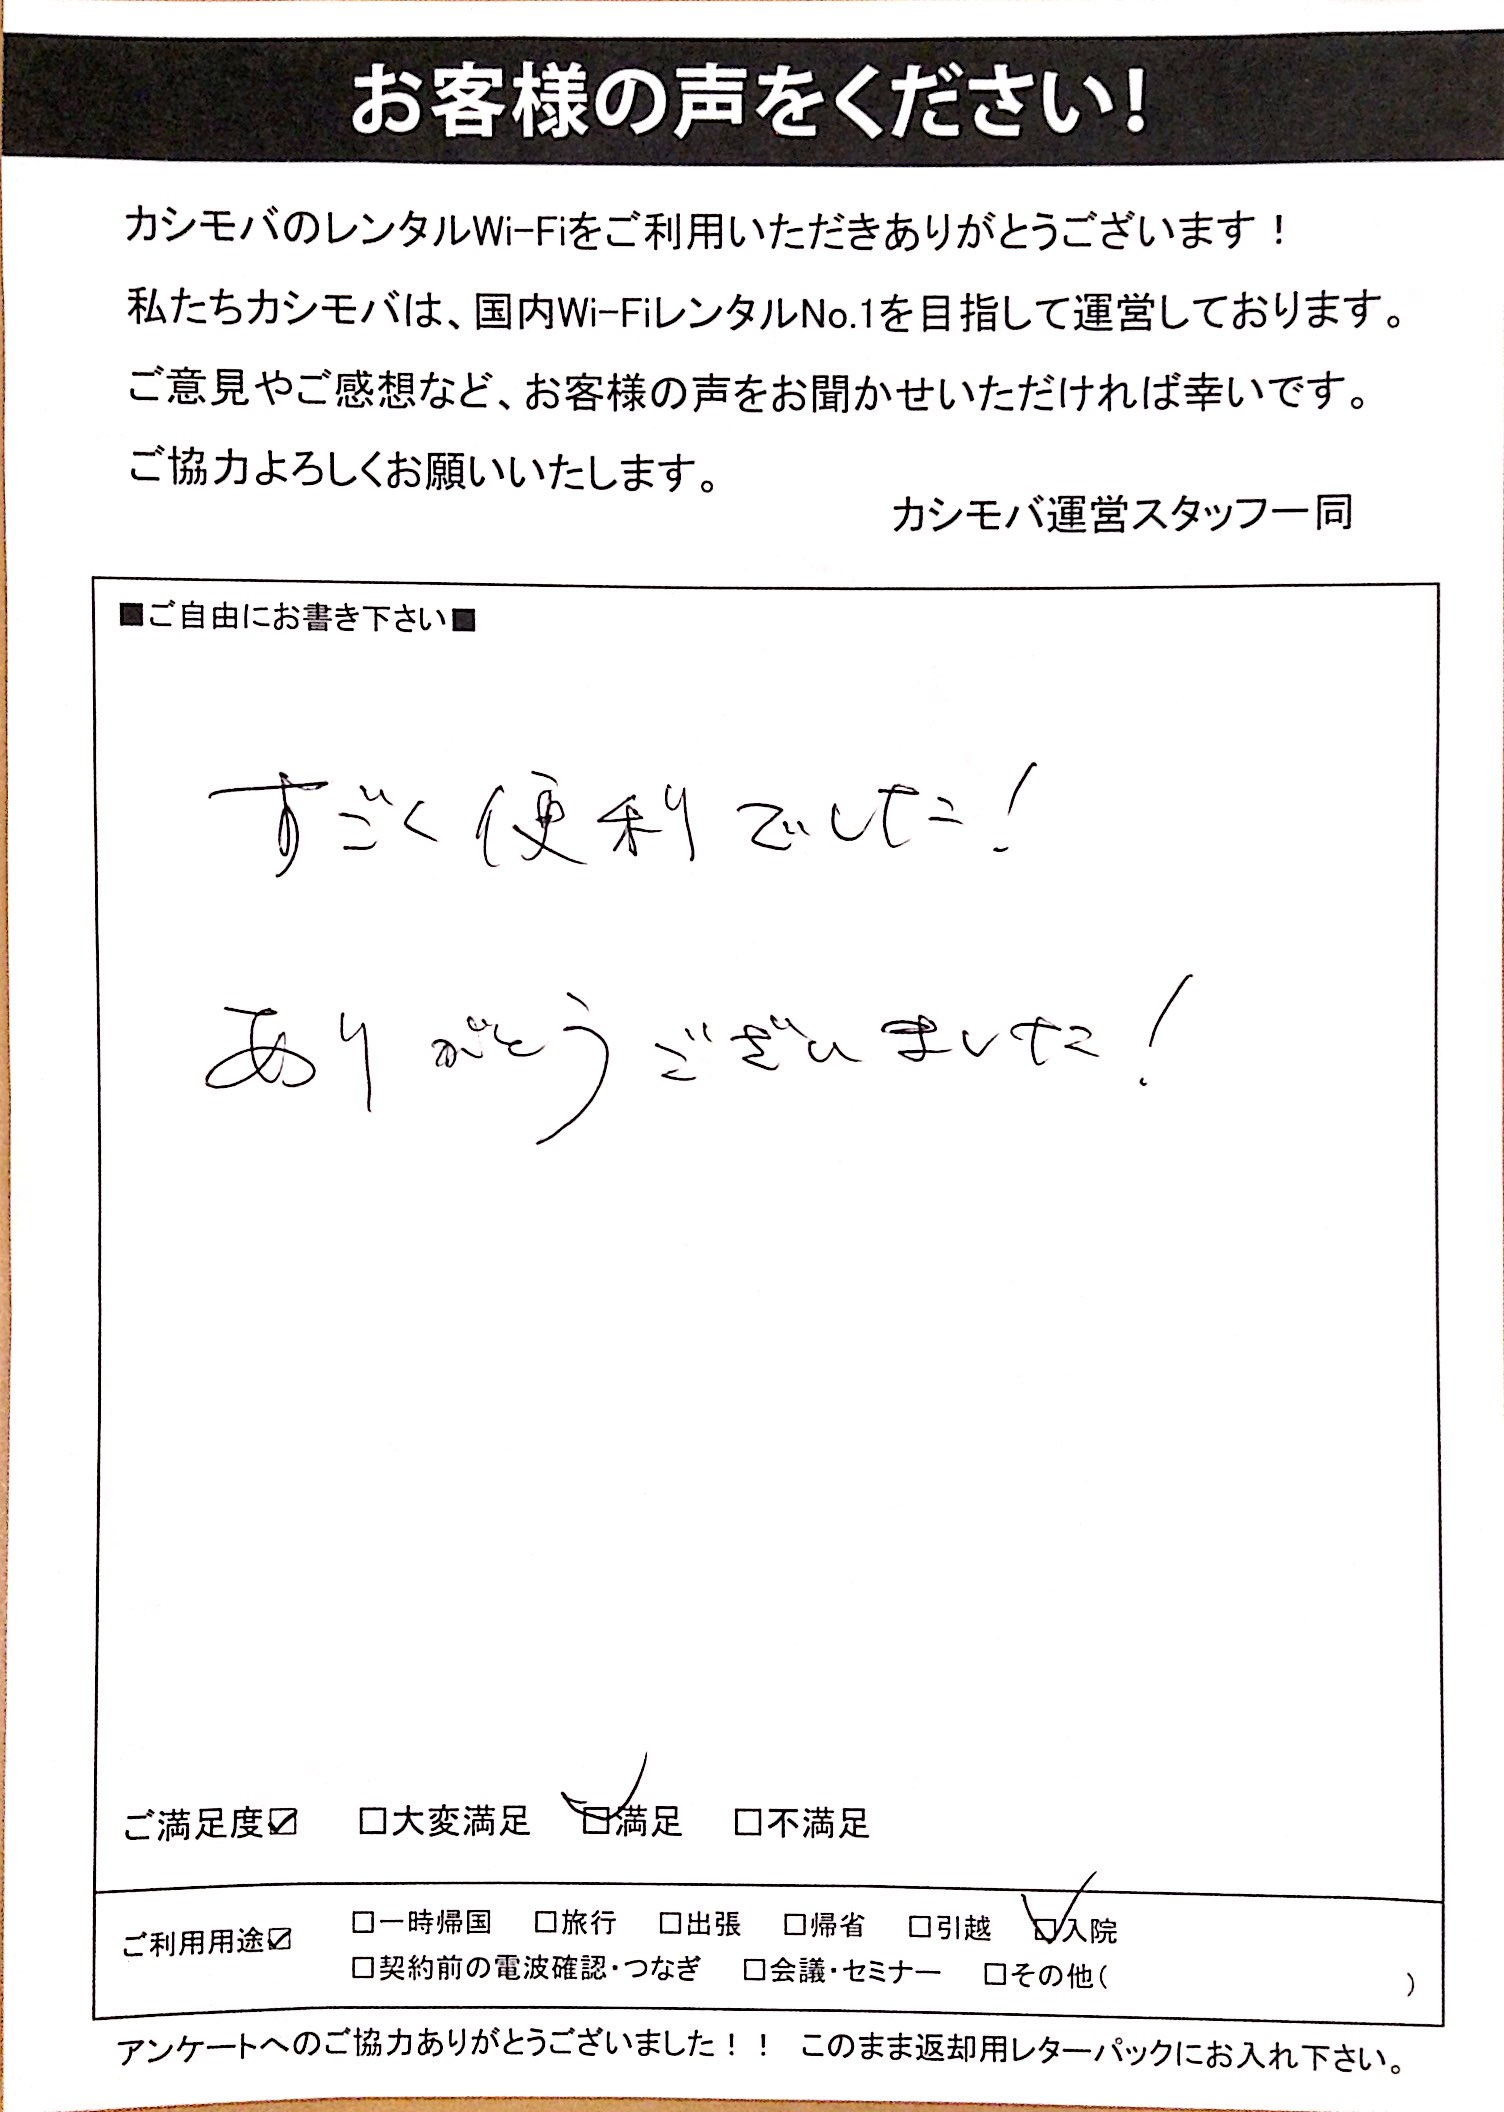 お客様の声をください!
カシモバのレンタルWi-Fiをご利用いただきありがとうございます！
私たちカシモバは、国内Wi-FiレンタルNo.1を目指して運営しております。
ご意見やご感想など、お客様の声をお聞かせいただければ幸いです。
ご協力よろしくお願いいたします。
カシモバ運営スタッフ一同
■ご自由にお書き下さい■
すごく便利でした!
ありがとうございました!
ご満足度☑ □大変満足 ☑満足 □不満足
ご利用用途☑ □一時帰国 □旅行 □出張 □帰省 □引越 ☑入院
□契約前の電波確認・つなぎ □会議・セミナー □その他( )
アンケートへのご協力ありがとうございました！！ このまま返却用レターパックにお入れ下さい。